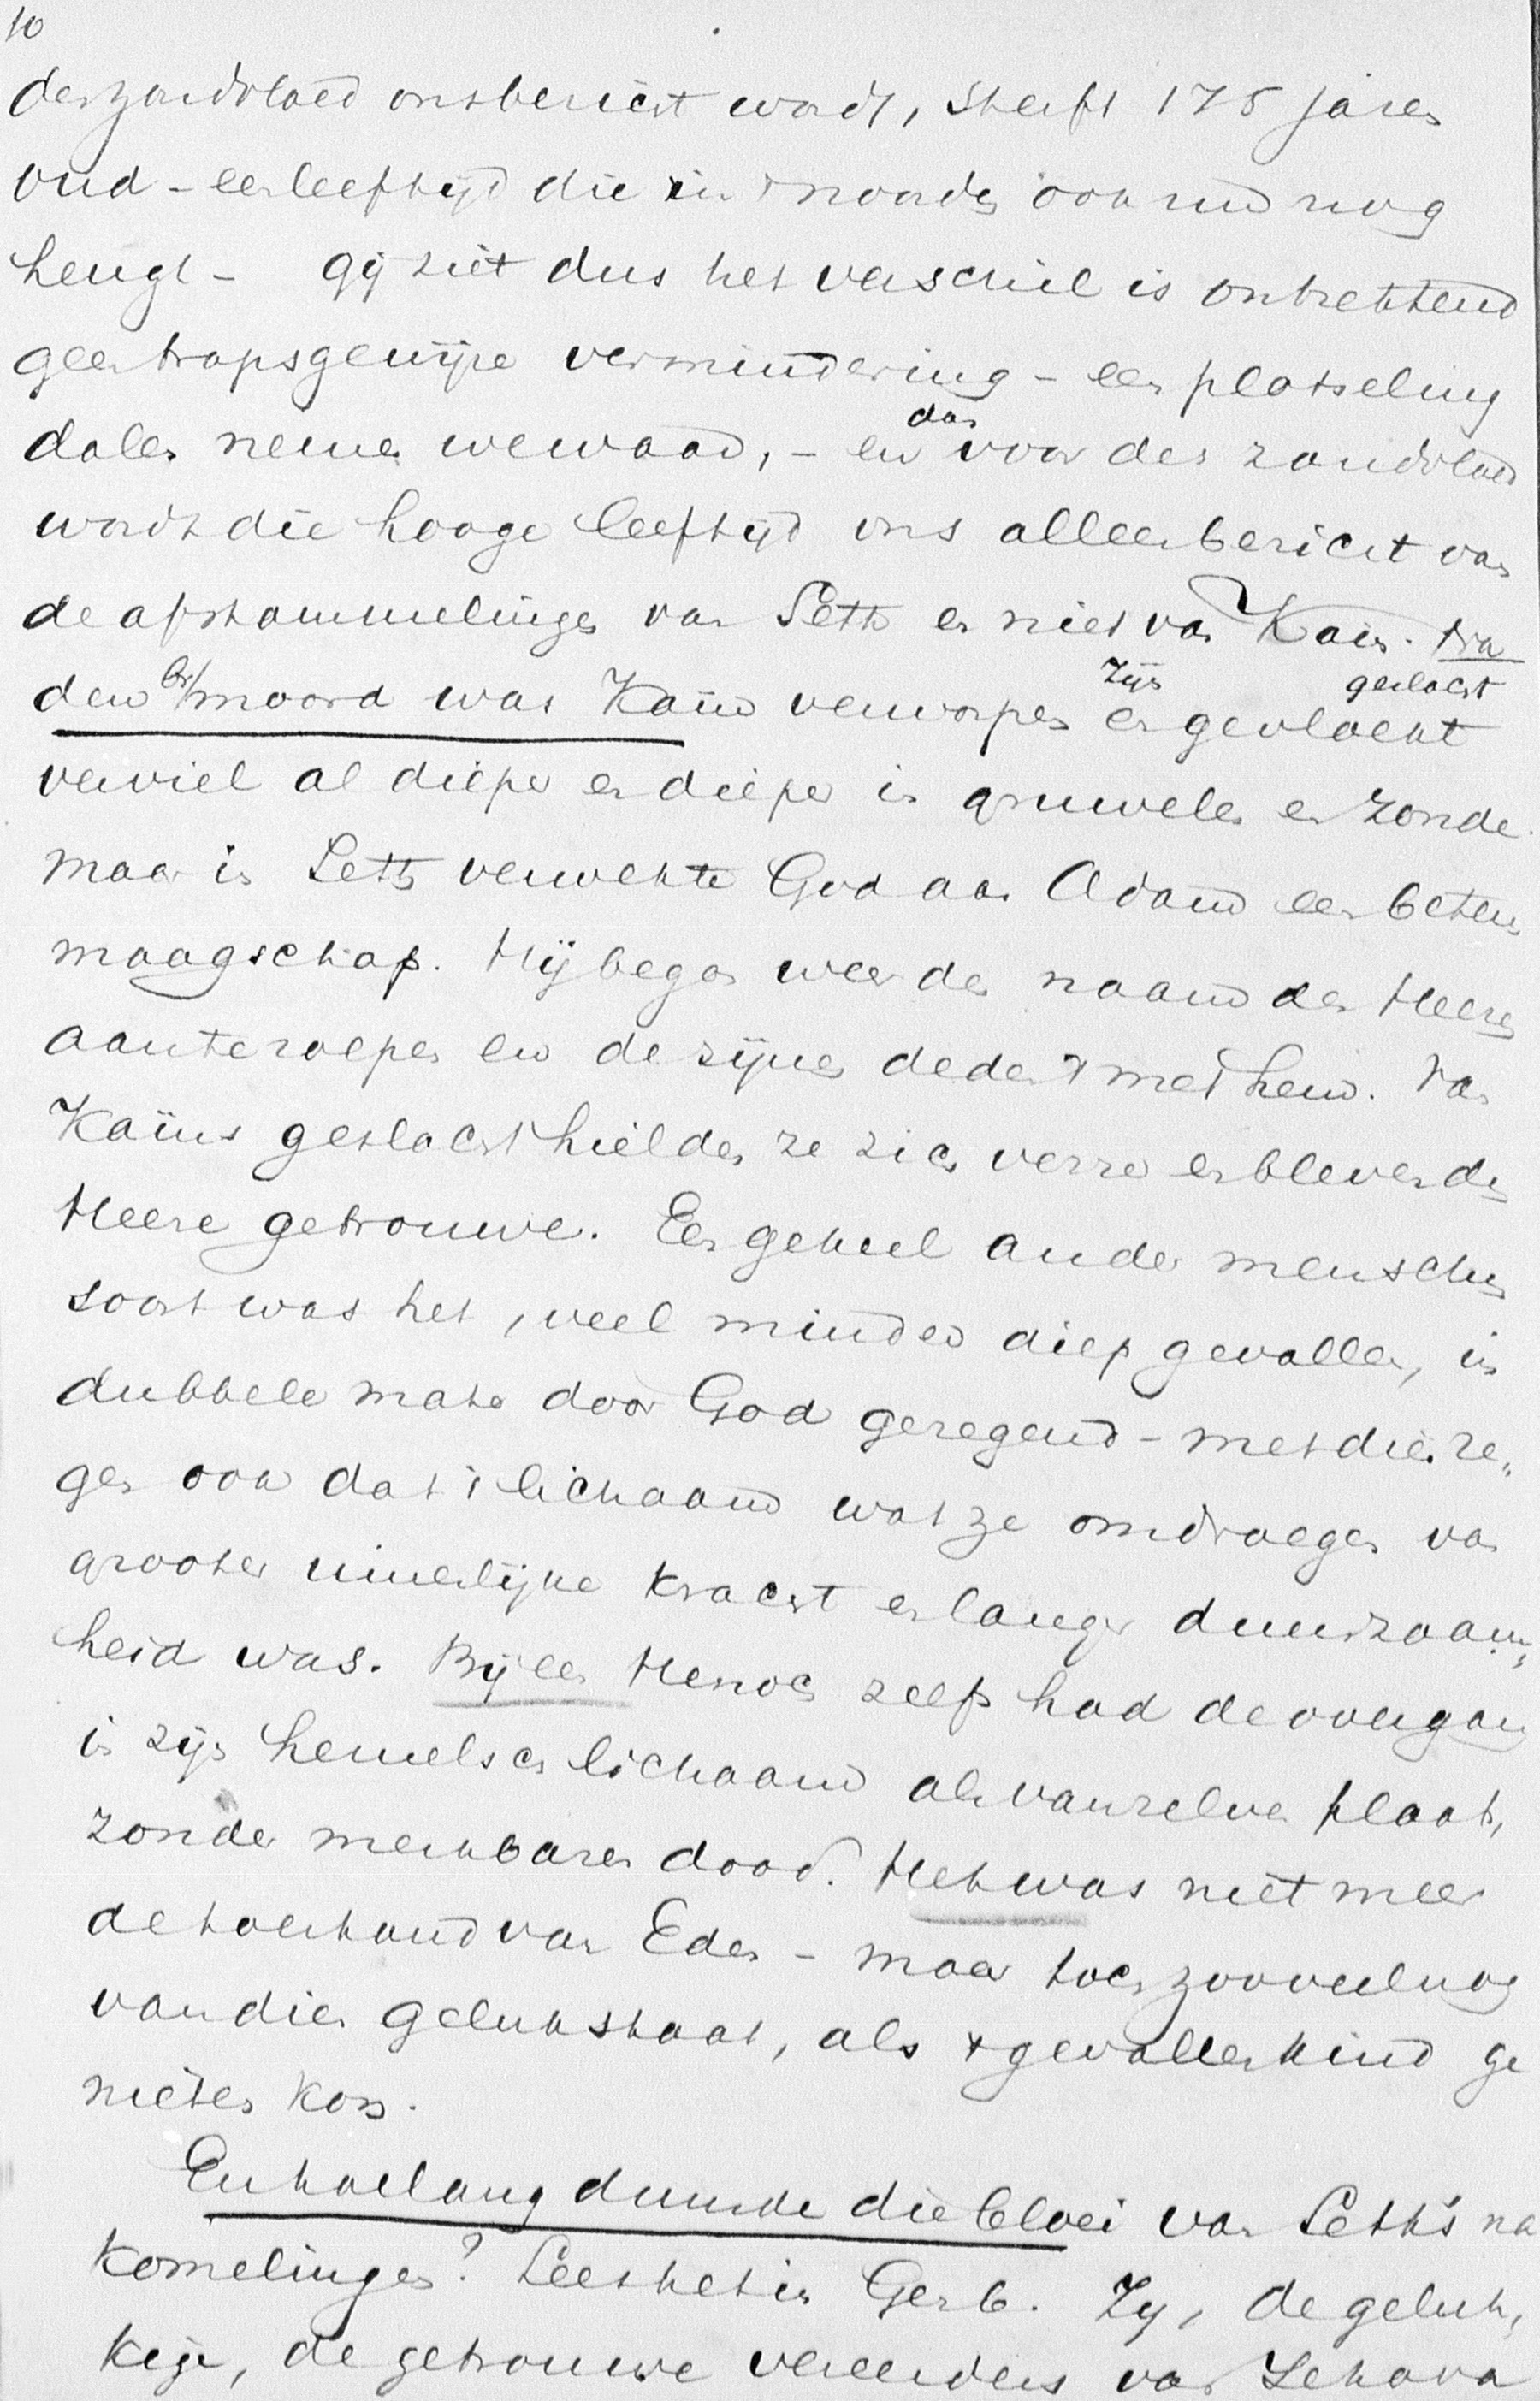 10
den zondvloed ons bericht wordt, sterft 175 jaren
oud - een leeftijd die in 't noorden ook nu nog
heugt - gij ziet dus het verschil is ontzettend
geen trapsgewijze vermindering - een plotseling
dalen nemen we waar, - en dan voor den zondvloed
wordt die hooge leeftijd ons alleen bericht van
de afstammelingen van Seth en niet van Kain. Na
den br/moord was Kaïn verworpen en zijn geslacht gevloekt
verviel al dieper en dieper in gruwelen en zonde.
maar in Seth verwekte God aan Adam een beter
maagschap. Hij begon weer den naam des Heeren
aan te roepen en de zijnen deden 't met hem. Van
Kaïns geslacht hielden ze zich verre en bleven den
Heere getrouwe. Een geheel ander menschen
soort was het, veel minder diep gevallen, in
dubbele mate door God gezegend - met dien ze„
gen ook dat 't lichaam wat ze omdroegen van
grooter innerlijke kracht en langer duurzaam„
heid was. Bij een Henoch zelfs had de overgang
in zijn hemelsch lichaam als vanzelve plaats,
zonder merkbaren dood. Het was niet meer
de toestand van Eden - maar toch zooveel nog
van dien gelukstaat, als 't gevallen kind ge
nieten kon.
En hoelang duurde die bloei van Seth's na
komelingen? Lees het in Gen 6. Zij, de geluk„
kige, de getrouwe vereerders van Jehova